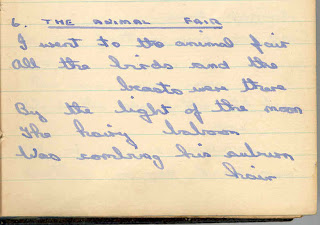 6. THE ANIMAL FAIR
I went to the animal fair
All the birds and the
beasts were there
By the light of the moon
The hairy baboon
Was combing his auburn
hair